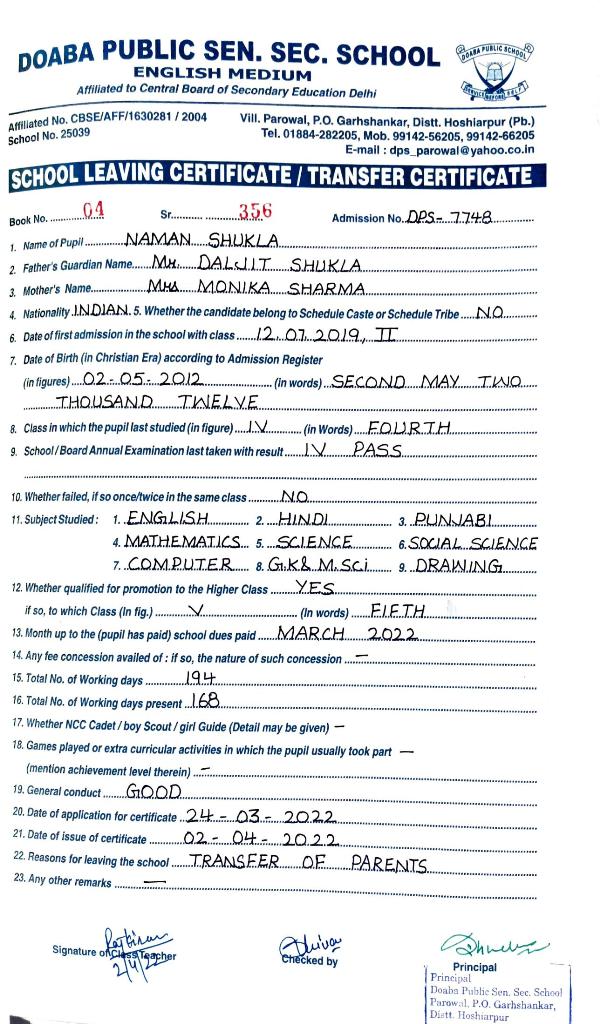 DOABA PUBLIC SEN. SEC. SCHOOL
ENGLISH MEDIUM
Affiliated to Central Board of Secondary Education Delhi
DOABA PUBLIC SCHOOL
SERVICE BEFORE SELF
Affiliated No. CBSE/AFF/1630281 / 2004
School No. 25039
Vill. Parowal, P.O. Garhshankar, Distt. Hoshiarpur (Pb.)
Tel. 01884-282205, Mob. 99142-56205, 99142-66205
E-mail : dps_parowal@yahoo.co.in
SCHOOL LEAVING CERTIFICATE / TRANSFER CERTIFICATE
Book No. 04 Sr. 356 Admission No. DPS-7748
1. Name of Pupil NAMAN SHUKLA
2. Father's Guardian Name MR. DALJIT SHUKLA
3. Mother's Name MRS MONIKA SHARMA
4. Nationality INDIAN. 5. Whether the candidate belong to Schedule Caste or Schedule Tribe NO
6. Date of first admission in the school with class 12.07.2019, II
7. Date of Birth (in Christian Era) according to Admission Register
(in figures) 02-05-2012 (in words) SECOND MAY TWO
THOUSAND TWELVE
8. Class in which the pupil last studied (in figure) IV (in Words) FOURTH
9. School / Board Annual Examination last taken with result IV PASS
10. Whether failed, if so once/twice in the same class NO
11. Subject Studied : 1. ENGLISH 2. HINDI 3. PUNJABI
4. MATHEMATICS 5. SCIENCE 6. SOCIAL SCIENCE
7. COMPUTER 8. G.K & M.Sci 9. DRAWING
12. Whether qualified for promotion to the Higher Class YES
if so, to which Class (In fig.) V (In words) FIFTH
13. Month up to the (pupil has paid) school dues paid MARCH 2022
14. Any fee concession availed of : if so, the nature of such concession —
15. Total No. of Working days 194
16. Total No. of Working days present 168
17. Whether NCC Cadet / boy Scout / girl Guide (Detail may be given) —
18. Games played or extra curricular activities in which the pupil usually took part —
(mention achievement level therein) —
19. General conduct GOOD
20. Date of application for certificate 24-03-2022
21. Date of issue of certificate 02-04-2022
22. Reasons for leaving the school TRANSFER OF PARENTS
23. Any other remarks —
Signature of Class Teacher
2/4/22
Checked by
Principal
Principal
Doaba Public Sen. Sec. School
Parowal, P.O. Garhshankar,
Distt. Hoshiarpur